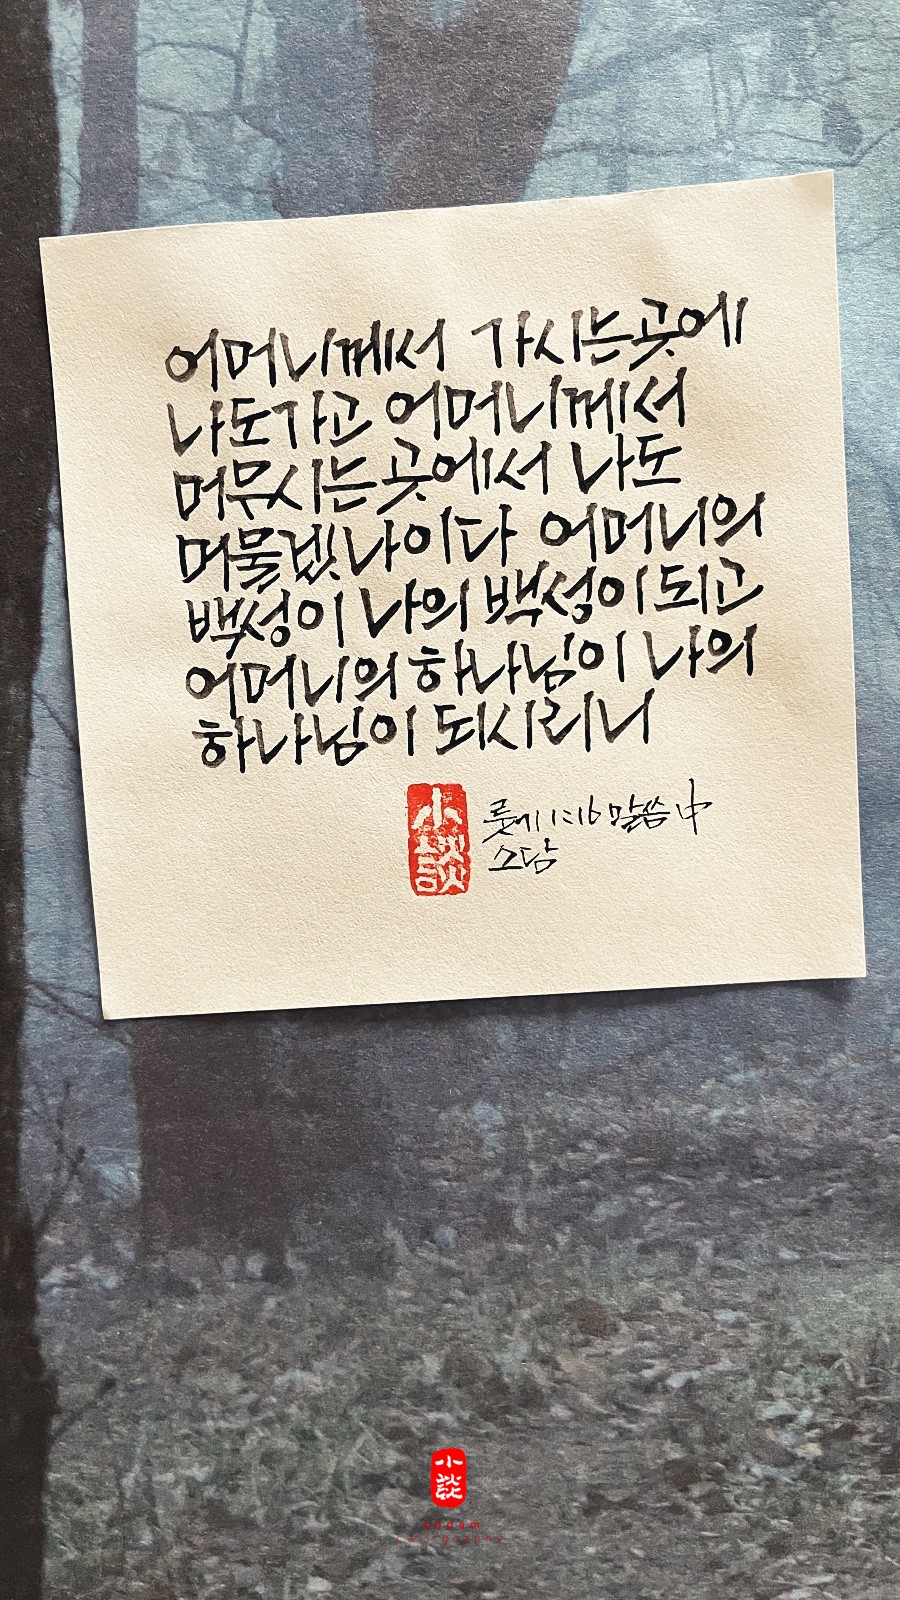 어머니께서 가시는곳에
나도가고 어머니께서
머무시는곳에서 나도
머물겠나이다 어머니의
백성이 나의 백성이되고
어머니의 하나님이 나의
하나님이 되시리니
小談
룻에 1:16 말씀 中
소담
小談
sodam
calligraphy